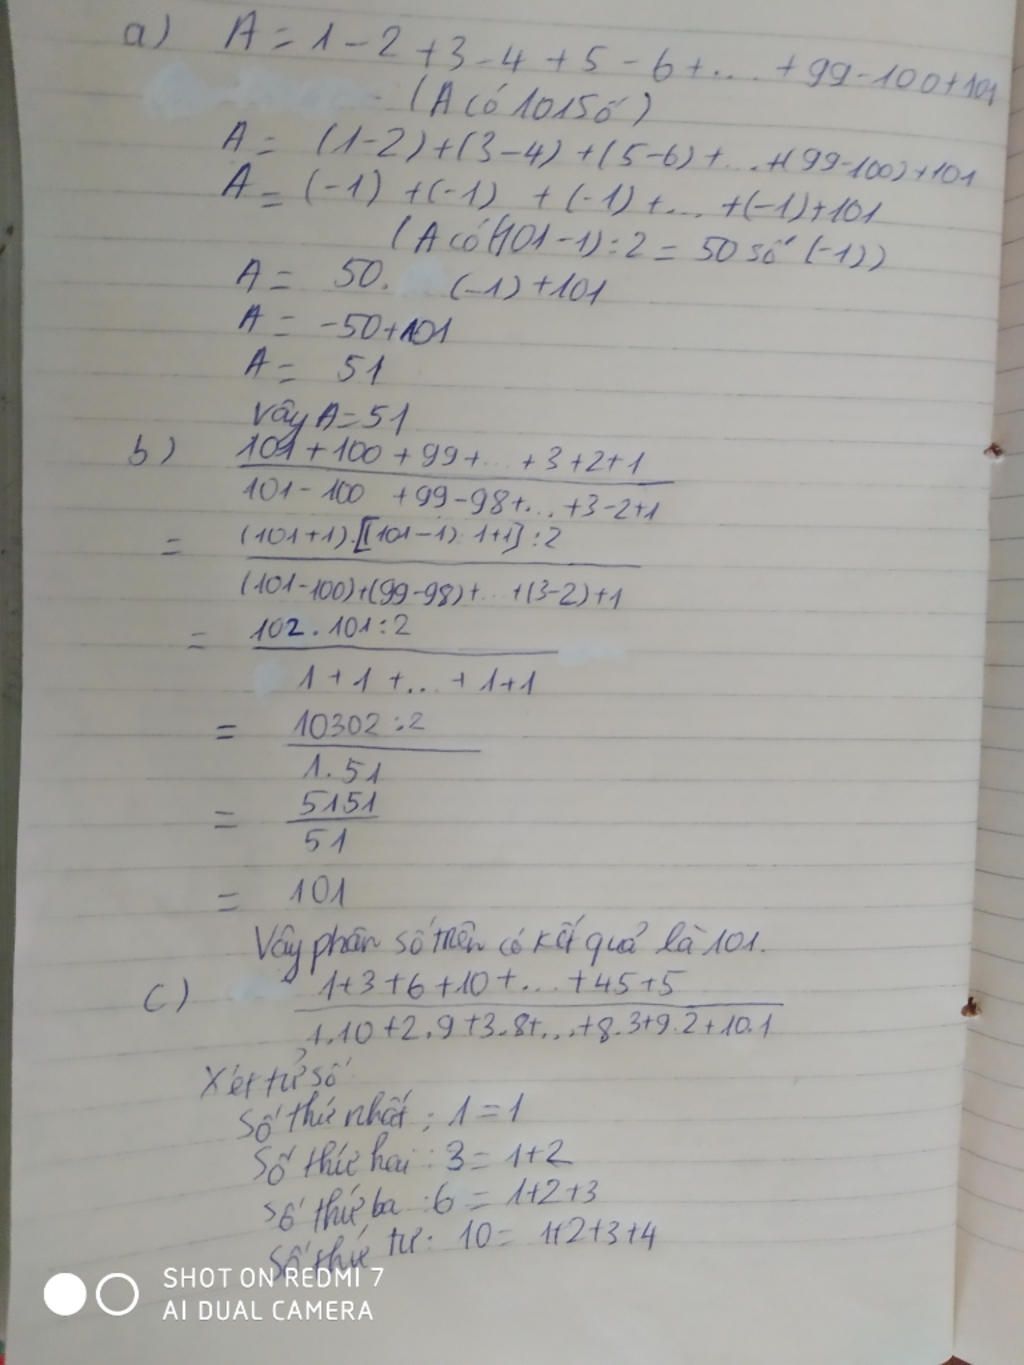 a) A = 1 - 2 + 3 - 4 + 5 - 6 + ... + 99 - 100 + 101
(A có 101 số)
A = (1-2)+(3-4)+(5-6)+...+(99-100)+101
A = (-1) + (-1) + (-1) + ... + (-1)+101
(A có (101-1):2 = 50 số (-1))
A = 50. (-1) + 101
A = -50+101
A = 51
Vậy A = 51
b) 101 + 100 + 99 + ... + 3 + 2 + 1
101 - 100 + 99 - 98 + ... + 3 - 2 + 1
= (101+1).[101-1): 1+1] : 2
(101-100)+(99-98)+...+(3-2)+1
= 102 . 101 : 2
1 + 1 + ... + 1 + 1
= 10302 : 2
1 . 51
= 5151
51
= 101
Vậy phân số trên có kết quả là 101.
c) 1+3+6+10+...+45+5
1.10+2.9+3.8+...+8.3+9.2+10.1
Xét tử số
Số thứ nhất : 1 = 1
Số thứ hai : 3 = 1+2
Số thứ ba : 6 = 1+2+3
Số thứ tư : 10 = 1+2+3+4
SHOT ON REDMI 7
AI DUAL CAMERA